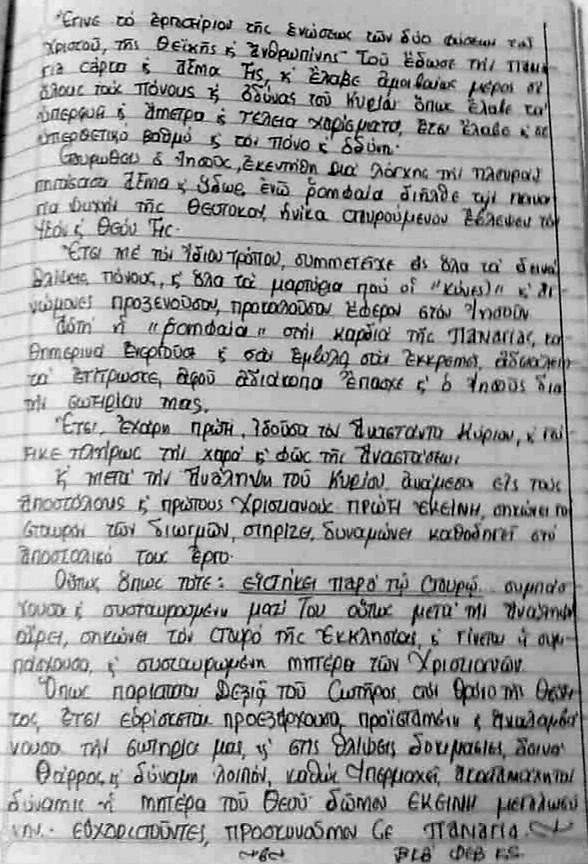 Ἔγινε τό ἐργαστήριον τῆς ἑνώσεως τῶν δύο φύσεων τοῦ
Χριστοῦ, τῆς Θεϊκῆς κ ἀνθρωπίνης Τοῦ ἔδωσε τήν
σάρκα κ αἷμα Της, κ' ἔλαβε ἀμοιβαίως μέρος σέ
ὅλους τούς πόνους κ ὀδύνας τοῦ Κυρίου ὅπως ἔλαβε τά
ὑπερφυᾶ κ ἄμετρα κ τέλεια χαρίσματα, ἔτσι ἔλαβε κ σέ
ὑπερθετικό βαθμό κ τόν πόνο κ ὀδύνη.
Σταυρωθείς ὁ Ἰησοῦς, ἐκεντήθη διά λόγχης τήν πλευράν
πηγάσασα αἷμα κ ὕδωρ, ἐνῶ ρομφαία διῆλθε τήν
ψυχήν τῆς Θεοτόκου, ἡνίκα σταυρούμενον ἔβλεψεν τόν
Υἱόν κ Θεόν Της.
Ἔτσι μέ τόν ἴδιον τρόπον, συμμετεῖχε εἰς ὅλα τά δεινά
θλίψεις, πόνους, κ ὅλα τά μαρτύρια πού οἱ "κύνες" κ'
προξενοῦσαν, προκαλοῦσαν ἔφερον στόν Ἰησοῦν
Αὐτή ἡ "ρομφαία" στήν καρδιά τῆς Παναγίας,
κ σάν ἔμβολα σάν ἐκκρεμές,
ἀφοῦ ἀδιάκοπα ἔπασχε κ' ὁ Ἰησοῦς διά
τήν σωτηρίαν μας.
Ἔτσι, ἐχάρη πρώτη, ἰδοῦσα τόν Ἀναστάντα Κύριον, κ
πλήρως τήν χαρά κ' φῶς τῆς Ἀναστάσεως
κ μετά τήν Ἀνάληψη τοῦ Κυρίου, ἀνάμεσα εἰς τούς
Ἀποστόλους κ πρώτους Χριστιανούς ΠΡΩΤΗ ΕΚΕΙΝΗ, σηκώνει τόν
σταυρόν τῶν διωγμῶν, στηρίζει, δυναμώνει καθοδηγεῖ στό
ἀποστολικό τους ἔργο.
Οὕτως ὅπως τότε: εἱστήκει παρά τῷ Σταυρῷ... συμπάσ-
χουσα κ συσταυρωμένη μαζί Του οὕτως μετά τήν Ἀνάληψη
αἴρει, σηκώνει τόν σταυρό τῆς Ἐκκλησίας, κ γίνεται ἡ συμ-
πάσχουσα, κ' συσταυρωμένη μητέρα τῶν Χριστιανῶν.
Ὅπως παρίσταται Δεξιᾷ τοῦ Σωτῆρος, στόν Θρόνο τῆς Θεότη-
τος, ἔτσι εὑρίσκεται προεξάρχουσα, προϊσταμένη κ ἀναλαμβά-
νουσα τήν σωτηρία μας, κ' στίς θλίψεις δοκιμασίες, δεινά
Θάρρος, κ' δύναμη λοιπόν, καθώς Ὑπερμαχεῖ, ἀκαταμάχητον
δύναμις ἡ μητέρα τοῦ Θεοῦ δῶμεν ΕΚΕΙΝΗ μεγάλων
εὐχαριστοῦντες, προσκυνοῦμεν Σε Παναγία